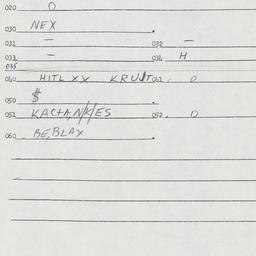 020 O
030 NEX .
031 — 032 —
033 — 034 H
035
040 HITL XX KRUIT 041. O
050 $ .
051 KACTA,N/K/ES 052. O
060 BE,BLAX .